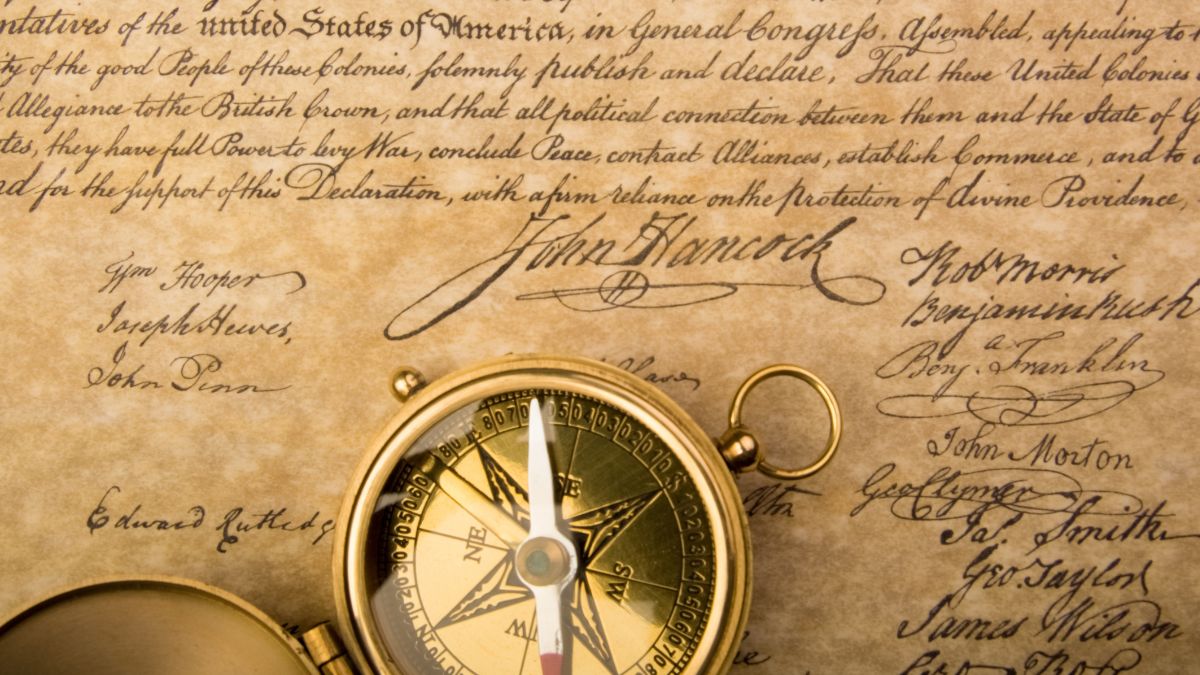 ntatives of the united States of America, in General Congress, Assembled, appealing to
ty of the good People of these Colonies, solemnly publish and declare, That these United Colonies
Allegiance to the British Crown, and that all political connection between them and the State of G
tes, they have full Power to levy War, conclude Peace, contract Alliances, establish Commerce, and to
nd for the support of this Declaration, with a firm reliance on the protection of divine Providence,
John Hancock
Wm Hooper
Joseph Hewes,
John Penn
Edward Rutledg
Robt Morris
Benjamin Rush
Benja. Franklin
John Morton
Geo Clymer
Jas. Smith
Geo. Taylor
James Wilson
Geo. Ross
NE
SW
W
N